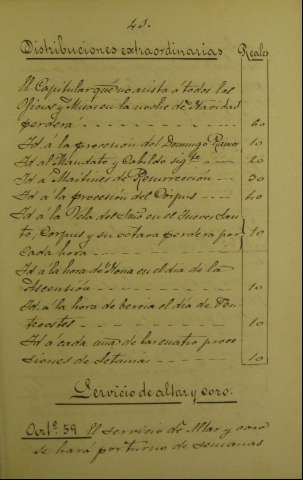 43.
Distribuciones extraordinarias Reales
El Capitular que no asista a todos los
Oficios y Misa en la noche de Navidad
perderá - - - - - - - - 60
Id. á la procesion del Domingo Ramos 10
Id. al Mandato y Cabildo sigte. á - - 20
Id. a Maitines de Resurrección - - 30
Id. á la procesión del Corpus - - - 40
Id. á la Vela del Smo. en el Jueves San-
to, Corpus y su octava perdera por
cada hora - - - - - - 10
Id. a la hora de Nona en el dia de la
Ascensión - - - - - - 10
Id. á la hora de tercia el dia de Pen-
tecostes - - - - - - - 10
Id. a cada una de las cuatro proce-
siones de Letanías - - - - - 10
Servicio de altar y coro.
Arto. 59 El servicio de Altar y coro
se hará por turno de semanas